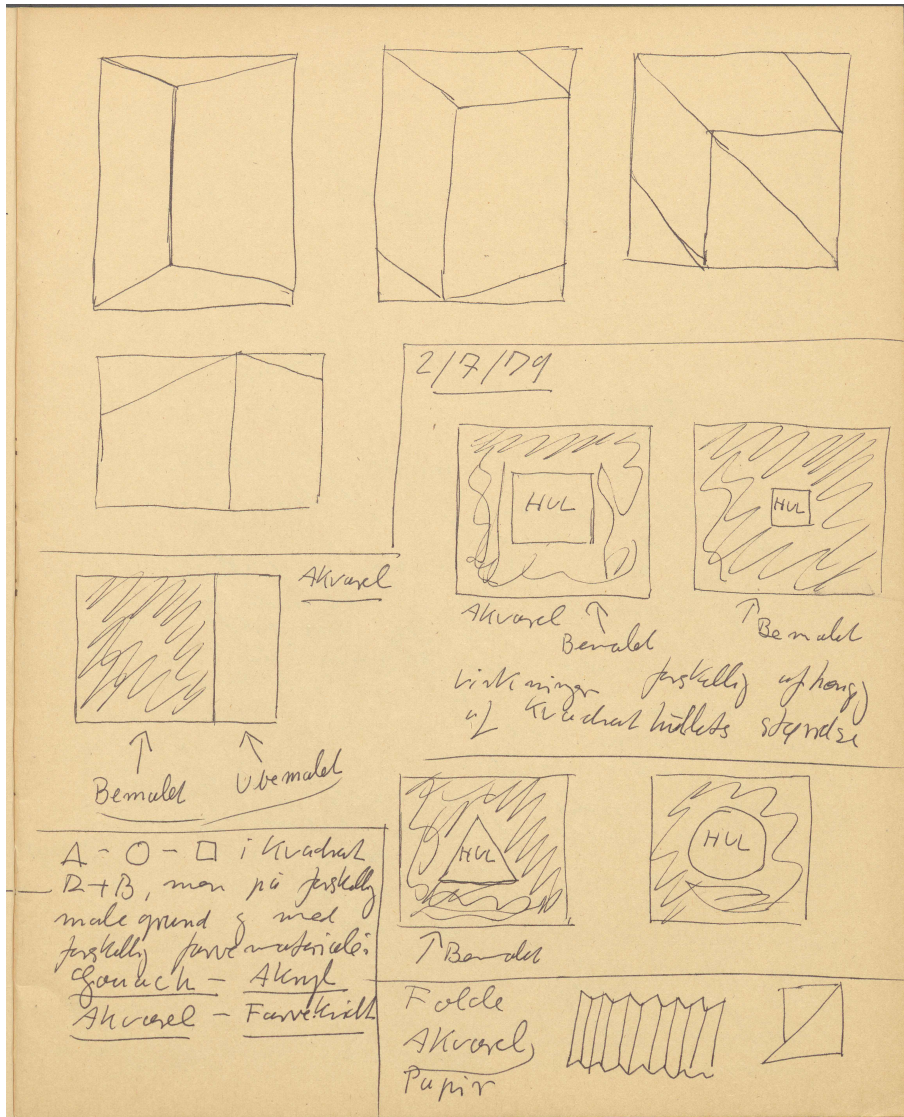 2/7/79
HUL
HUL
Akvarel
Bemalet
Bemalet
Virkninger forskellig afhængig
af Kvadrathullets størrelse
Akvarel
Bemalet
Ubemalet
HUL
HUL
Bemalet
△ - ○ - □ i Kvadrat
R+B, men på forskellig
malegrund og med
forskellig farvemateriale:
Gouach - Akryl
Akvarel - Farvekridt
Folde
Akvarel
Papir